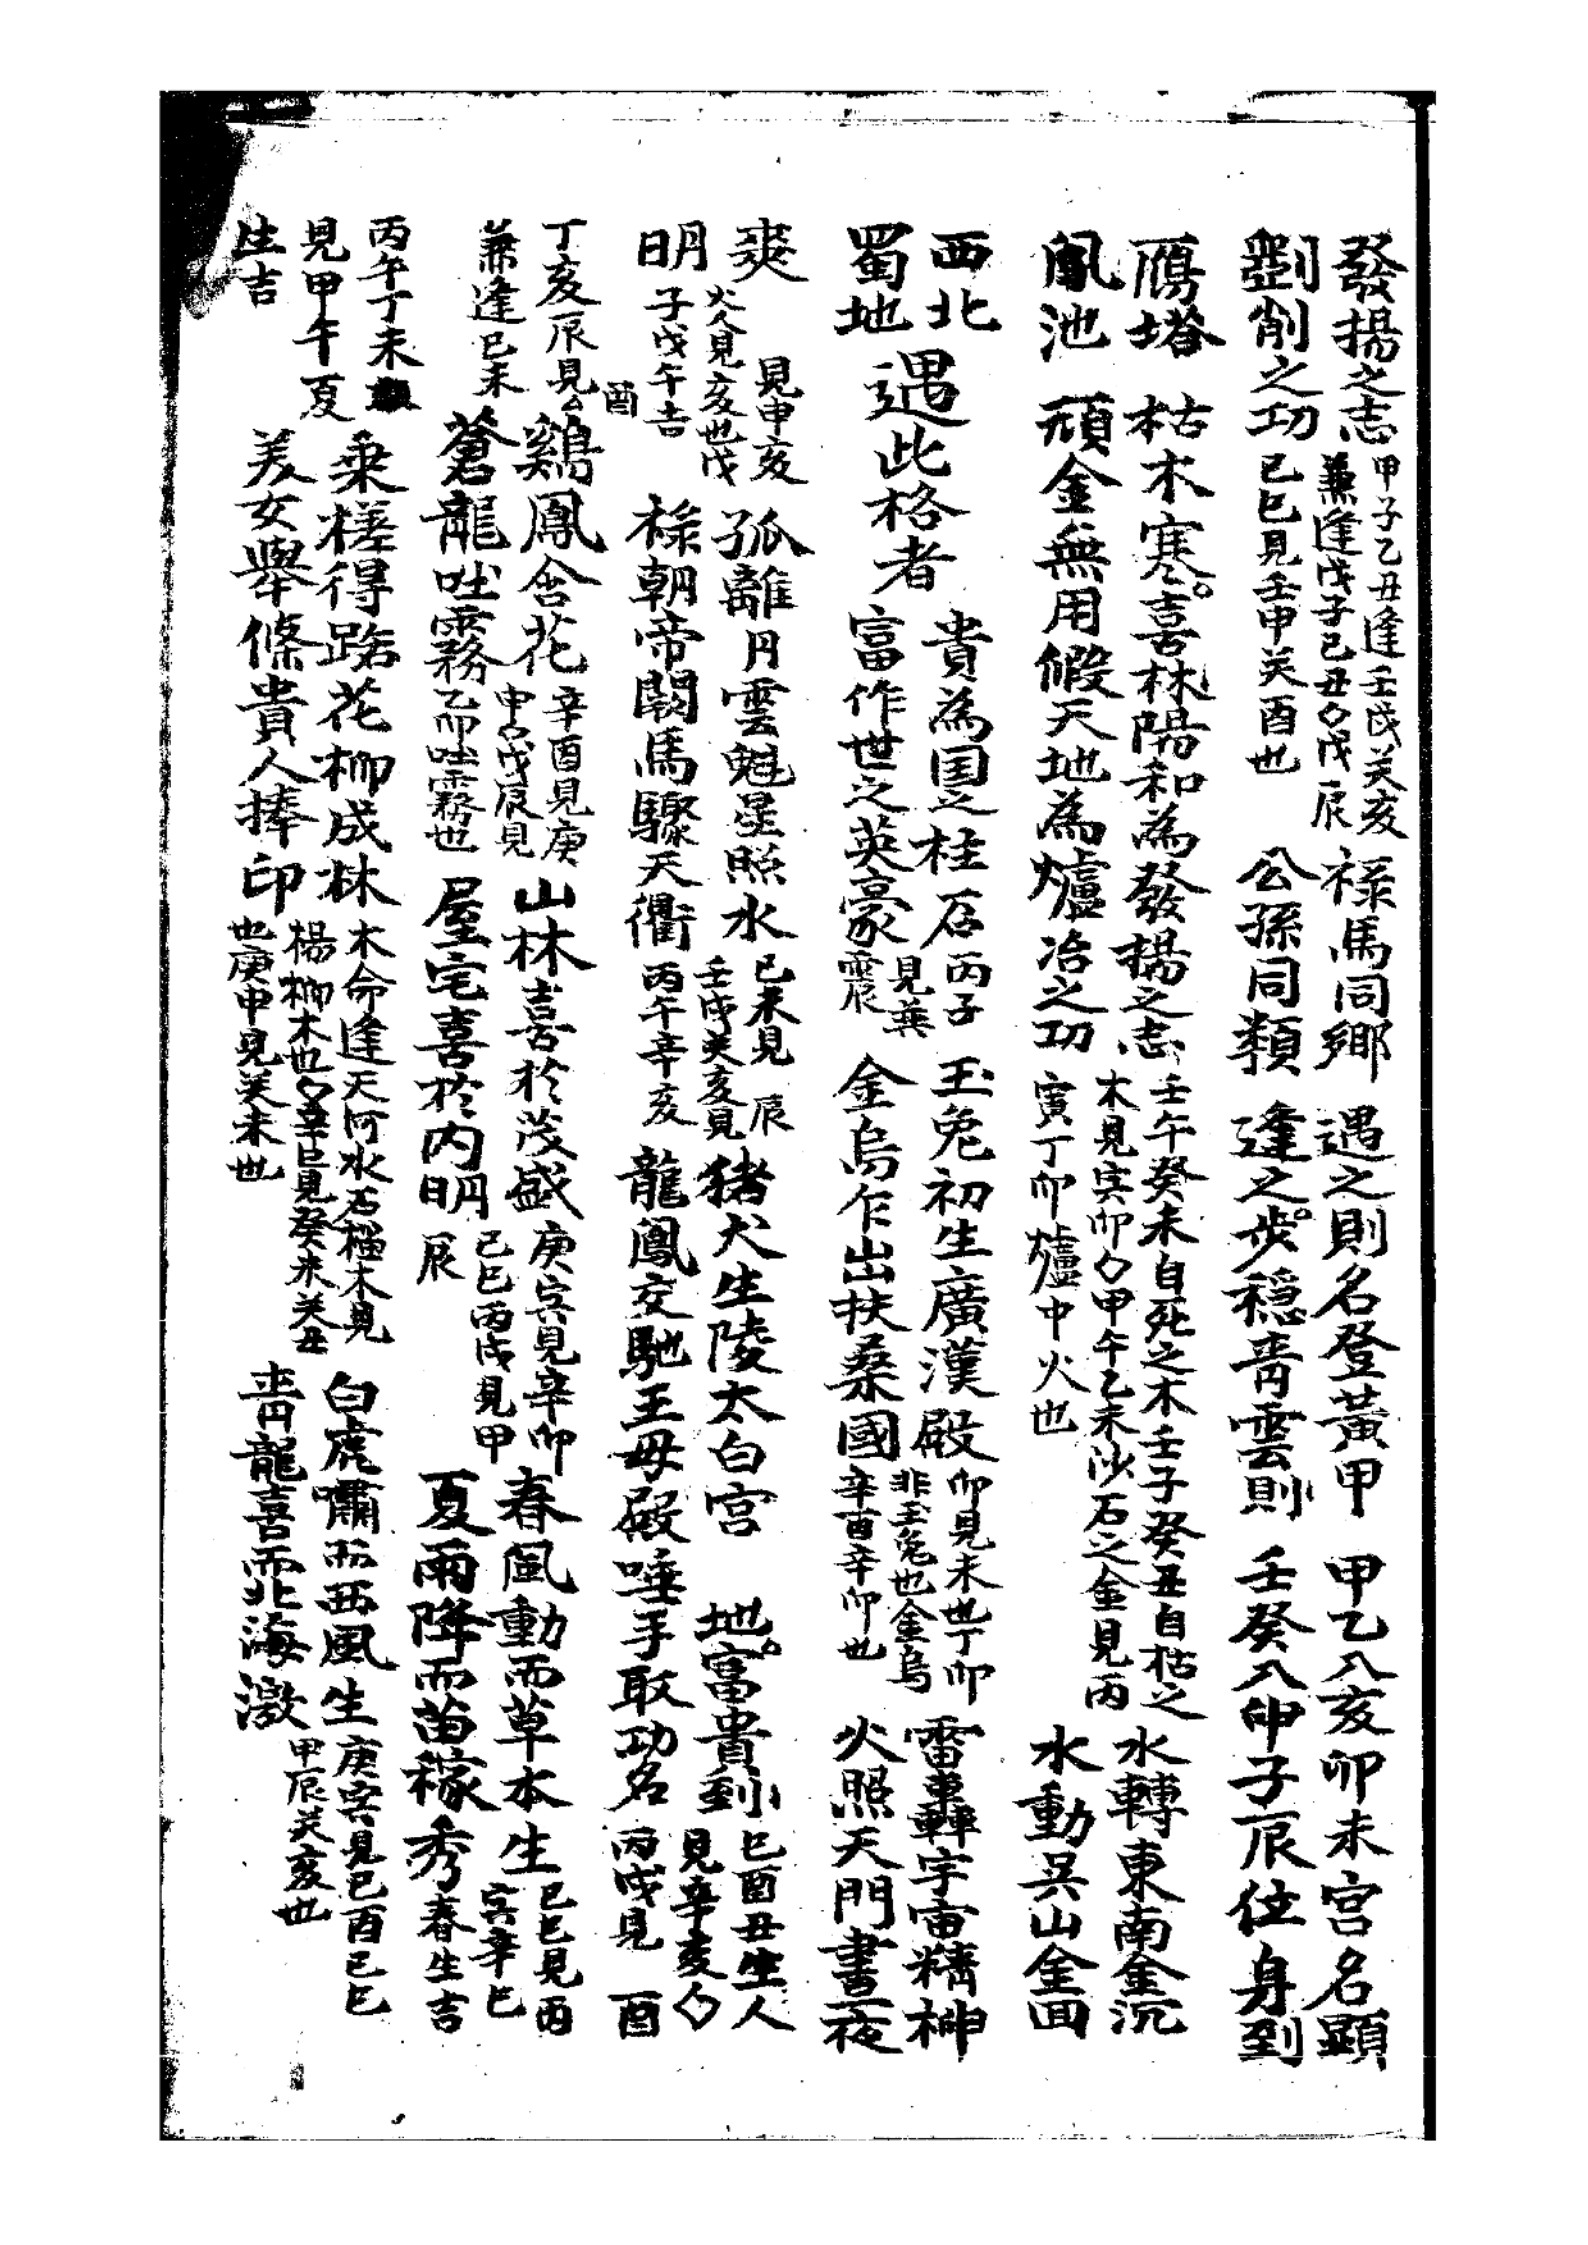 發揚之志 甲子乙丑逢壬戌癸亥 祿馬同鄉 遇之則名登黃甲 甲乙入亥卯未宮名顯
兼逢戊子己丑〇戊辰
劉削之功 己巳見壬申癸酉也 公孫同類 逢之步穩青雲則 壬癸入申子辰位身到
鴈塔 枯木寒喜林陽和為發揚之志 壬午癸未自死之木壬子癸丑自枯之 水轉東南金沉
木見寅卯〇甲午乙未沙石之金見丙
鳳池 頑金無用假天地為爐冶之功 寅丁卯爐中火也 水動吳山金回
西北 貴為国之柱石 丙子 玉兔初生廣漢殿 卯見未也丁卯 雷轟宇宙精神
遇此格者 見癸 非玉兔也金烏
蜀地 富作世之英豪 震 金烏乍出扶桑國 辛酉辛卯也 火照天門晝夜
爽 見申亥 孤離月雲魁星照水 己未見 辰 猪犬生陵太白宮 地富貴到 己酉丑生人
火人見亥也戊 壬戌癸亥見 見辛亥〇
明 子戊午吉 祿朝帝闕馬驟天衢 丙午辛亥 龍鳳交馳王母殿唾手取功名 丙戌見 酉
酉
丁亥辰見 鷄鳳含花 辛酉見庚 山林喜於茂盛 庚寅見辛卯 春風動而草本生 己巳見丙
兼逢己未 申〇戊辰見 己巳丙戌見甲 寅辛巳
蒼龍吐霧 乙而吐霧也 屋宅喜於内明 辰 夏雨降而苗稼秀 春生吉
丙午丁未 乘槎得路花柳成林 木命逢天河水石榴木見 白虎嘯而西風生 庚寅見己酉己巳
見甲午夏 楊柳木也〇辛巳見癸未癸丑 甲辰癸亥也
生吉 美女舉條貴人捧印 也庚申見癸未也 青龍喜而北海激